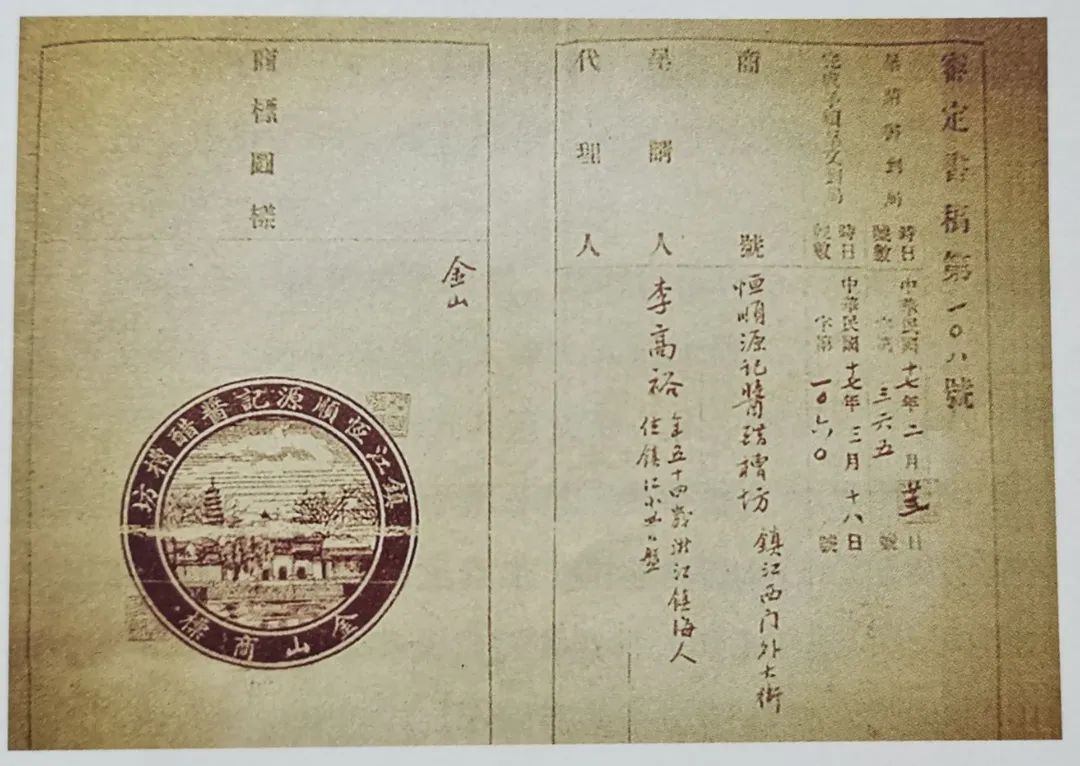 審定書稿第一〇八號
呈請書到局
時日 中華民國十七年二月 日
號數 三六五 號
時日 中華民國十七年三月十八日
號數 字第一〇六〇號
商號 恒順源記醬醋糟坊 鎮江西門外大街
呈請人 李高裕 年五十四歲浙江鎮海人
住鎮江
代理人
商標圖樣
金山
鎮江恆順源記醬醋糟坊
金山商標